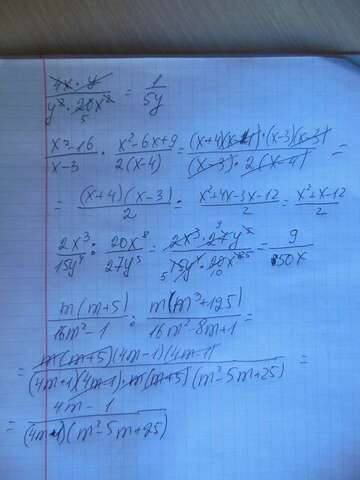 4x · y / y² · 20x² 5 = 1 / 5y
x²-16 / x-3 · x²-6x+9 / 2(x-4) = (x+4)(x-4)·(x-3)(x-3) / (x-3)·2(x-4) =
= (x+4)(x-3) / 2 · x²+4x-3x-12 / 2 = x²+x-12 / 2
2x³ / 15y⁴ : 20x⁸ / 27y⁵ = 2x³·27y⁵ 9 / 5 15y⁴·20x⁸ 10 = 9 / 50x
m(m+5) / 16m²-1 : m(m³+125) / 16m²-8m+1 =
= m(m+5)(4m-1)(4m-1) / (4m+1)(4m-1)·m(m+5)(m²-5m+25) =
= 4m-1 / (4m+1)(m²-5m+25)